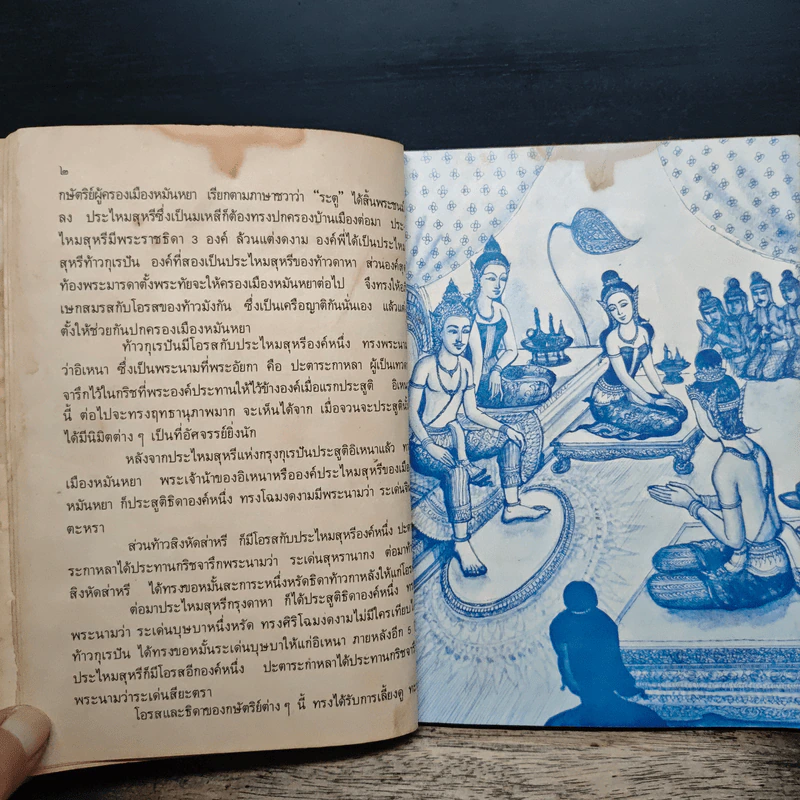 ๒
กษัตริย์ผู้ครองเมืองหมันหยา เรียกตามภาษาชวาว่า “ระตู” ได้สิ้นพระชนม์
ลง ประไหมสุหรีซึ่งเป็นมเหสีก็ต้องทรงปกครองบ้านเมืองต่อมา ประ
ไหมสุหรีมีพระราชธิดา 3 องค์ ล้วนแต่งดงาม องค์พี่ได้เป็นประไหม
สุหรีท้าวกุเรปัน องค์ที่สองเป็นประไหมสุหรีของท้าวดาหา ส่วนองค์สุด
ท้องพระมารดาตั้งพระทัยจะให้ครองเมืองหมันหยาต่อไป จึงทรงให้
เษกสมรสกับโอรสของท้าวมังกัน ซึ่งเป็นเครือญาติกันนั่นเอง แล้ว
ตั้งให้ช่วยกันปกครองเมืองหมันหยา
ท้าวกุเรปันมีโอรสกับประไหมสุหรีองค์หนึ่ง ทรงพระนาม
ว่าอิเหนา ซึ่งเป็นพระนามที่พระอัยกา คือ ปะตาระกาหลา ผู้เป็นเทวดา
จารึกไว้ในกริชที่พระองค์ประทานให้ไว้ข้างองค์เมื่อแรกประสูติ อิเหนา
นี้ ต่อไปจะทรงฤทธานุภาพมาก จะเห็นได้จาก เมื่อจวนจะประสูติ
ได้มีนิมิตต่าง ๆ เป็นที่อัศจรรย์ยิ่งนัก
หลังจากประไหมสุหรีแห่งกรุงกุเรปันประสูติอิเหนาแล้ว
เมืองหมันหยา พระเจ้าน้าของอิเหนาหรือองค์ประไหมสุหรีของเมือง
หมันหยา ก็ประสูติธิดาองค์หนึ่ง ทรงโฉมงดงามมีพระนามว่า ระเด่น
ตะหรา
ส่วนท้าวสิงหัดส่าหรี ก็มีโอรสกับประไหมสุหรีองค์หนึ่ง ปะตา
ระกาหลาได้ประทานกริชจารึกพระนามว่า ระเด่นสุหรานากง ต่อมาท้าว
สิงหัดส่าหรี ได้ทรงขอหมั้นสะการะหนึ่งหรัดธิดาท้าวกาหลังให้แก่โอรส
ต่อมาประไหมสุหรีกรุงดาหา ก็ได้ประสูติธิดาองค์หนึ่ง
พระนามว่า ระเด่นบุษบาหนึ่งหรัด ทรงศิริโฉมงดงามไม่มีใครเทียบ
ท้าวกุเรปัน ได้ทรงขอหมั้นระเด่นบุษบาให้แก่อิเหนา ภายหลังอีก 5
ประไหมสุหรีก็มีโอรสอีกองค์หนึ่ง ปะตาระกาหลาได้ประทานกริชจารึก
พระนามว่าระเด่นสียะตรา
โอรสและธิดาของกษัตริย์ต่าง ๆ นี้ ทรงได้รับการเลี้ยงดู